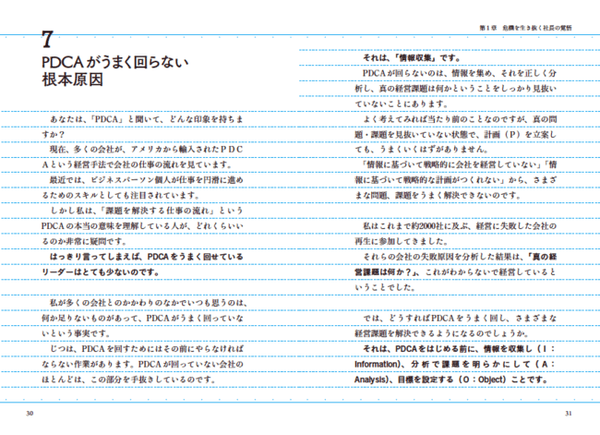 7
PDCAがうまく回らない
根本原因
あなたは、「PDCA」と聞いて、どんな印象を持ちま
すか？
現在、多くの会社が、アメリカから輸入されたＰＤＣ
Ａという経営手法で会社の仕事の流れを見ています。
最近では、ビジネスパーソン個人が仕事を円滑に進め
るためのスキルとしても注目されています。
しかし私は、「課題を解決する仕事の流れ」という
PDCAの本当の意味を理解している人が、どれくらいい
るのか非常に疑問です。
はっきり言ってしまえば、PDCAをうまく回せている
リーダーはとても少ないのです。
私が多くの会社とのかかわりのなかでいつも思うのは、
何か足りないものがあって、PDCAがうまく回っていな
いという事実です。
じつは、PDCAを回すためにはその前にやらなければ
ならない作業があります。PDCAが回っていない会社の
ほとんどは、この部分を手抜きしているのです。
30
第１章　危機を生き抜く社長の覚悟
それは、「情報収集」です。
PDCAが回らないのは、情報を集め、それを正しく分
析し、真の経営課題は何かということをしっかり見抜い
ていないことにあります。
よく考えてみれば当たり前のことなのですが、真の問
題・課題を見抜いていない状態で、計画（Ｐ）を立案し
ても、うまくいくはずがありません。
「情報に基づいて戦略的に会社を経営していない」「情
報に基づいて戦略的な計画がつくれない」から、さまざ
まな問題、課題をうまく解決できないのです。
私はこれまで約2000社に及ぶ、経営に失敗した会社の
再生に参加してきました。
それらの会社の失敗原因を分析した結果は、「真の経
営課題は何か？」、これがわからないで経営していると
いうことでした。
では、どうすればPDCAをうまく回し、さまざまな
経営課題を解決できるようになるのでしょうか。
それは、PDCAをはじめる前に、情報を収集し（Ｉ：
Information）、分析で課題を明らかにして（Ａ：
Analysis）、目標を設定する（Ｏ：Object）ことです。
31